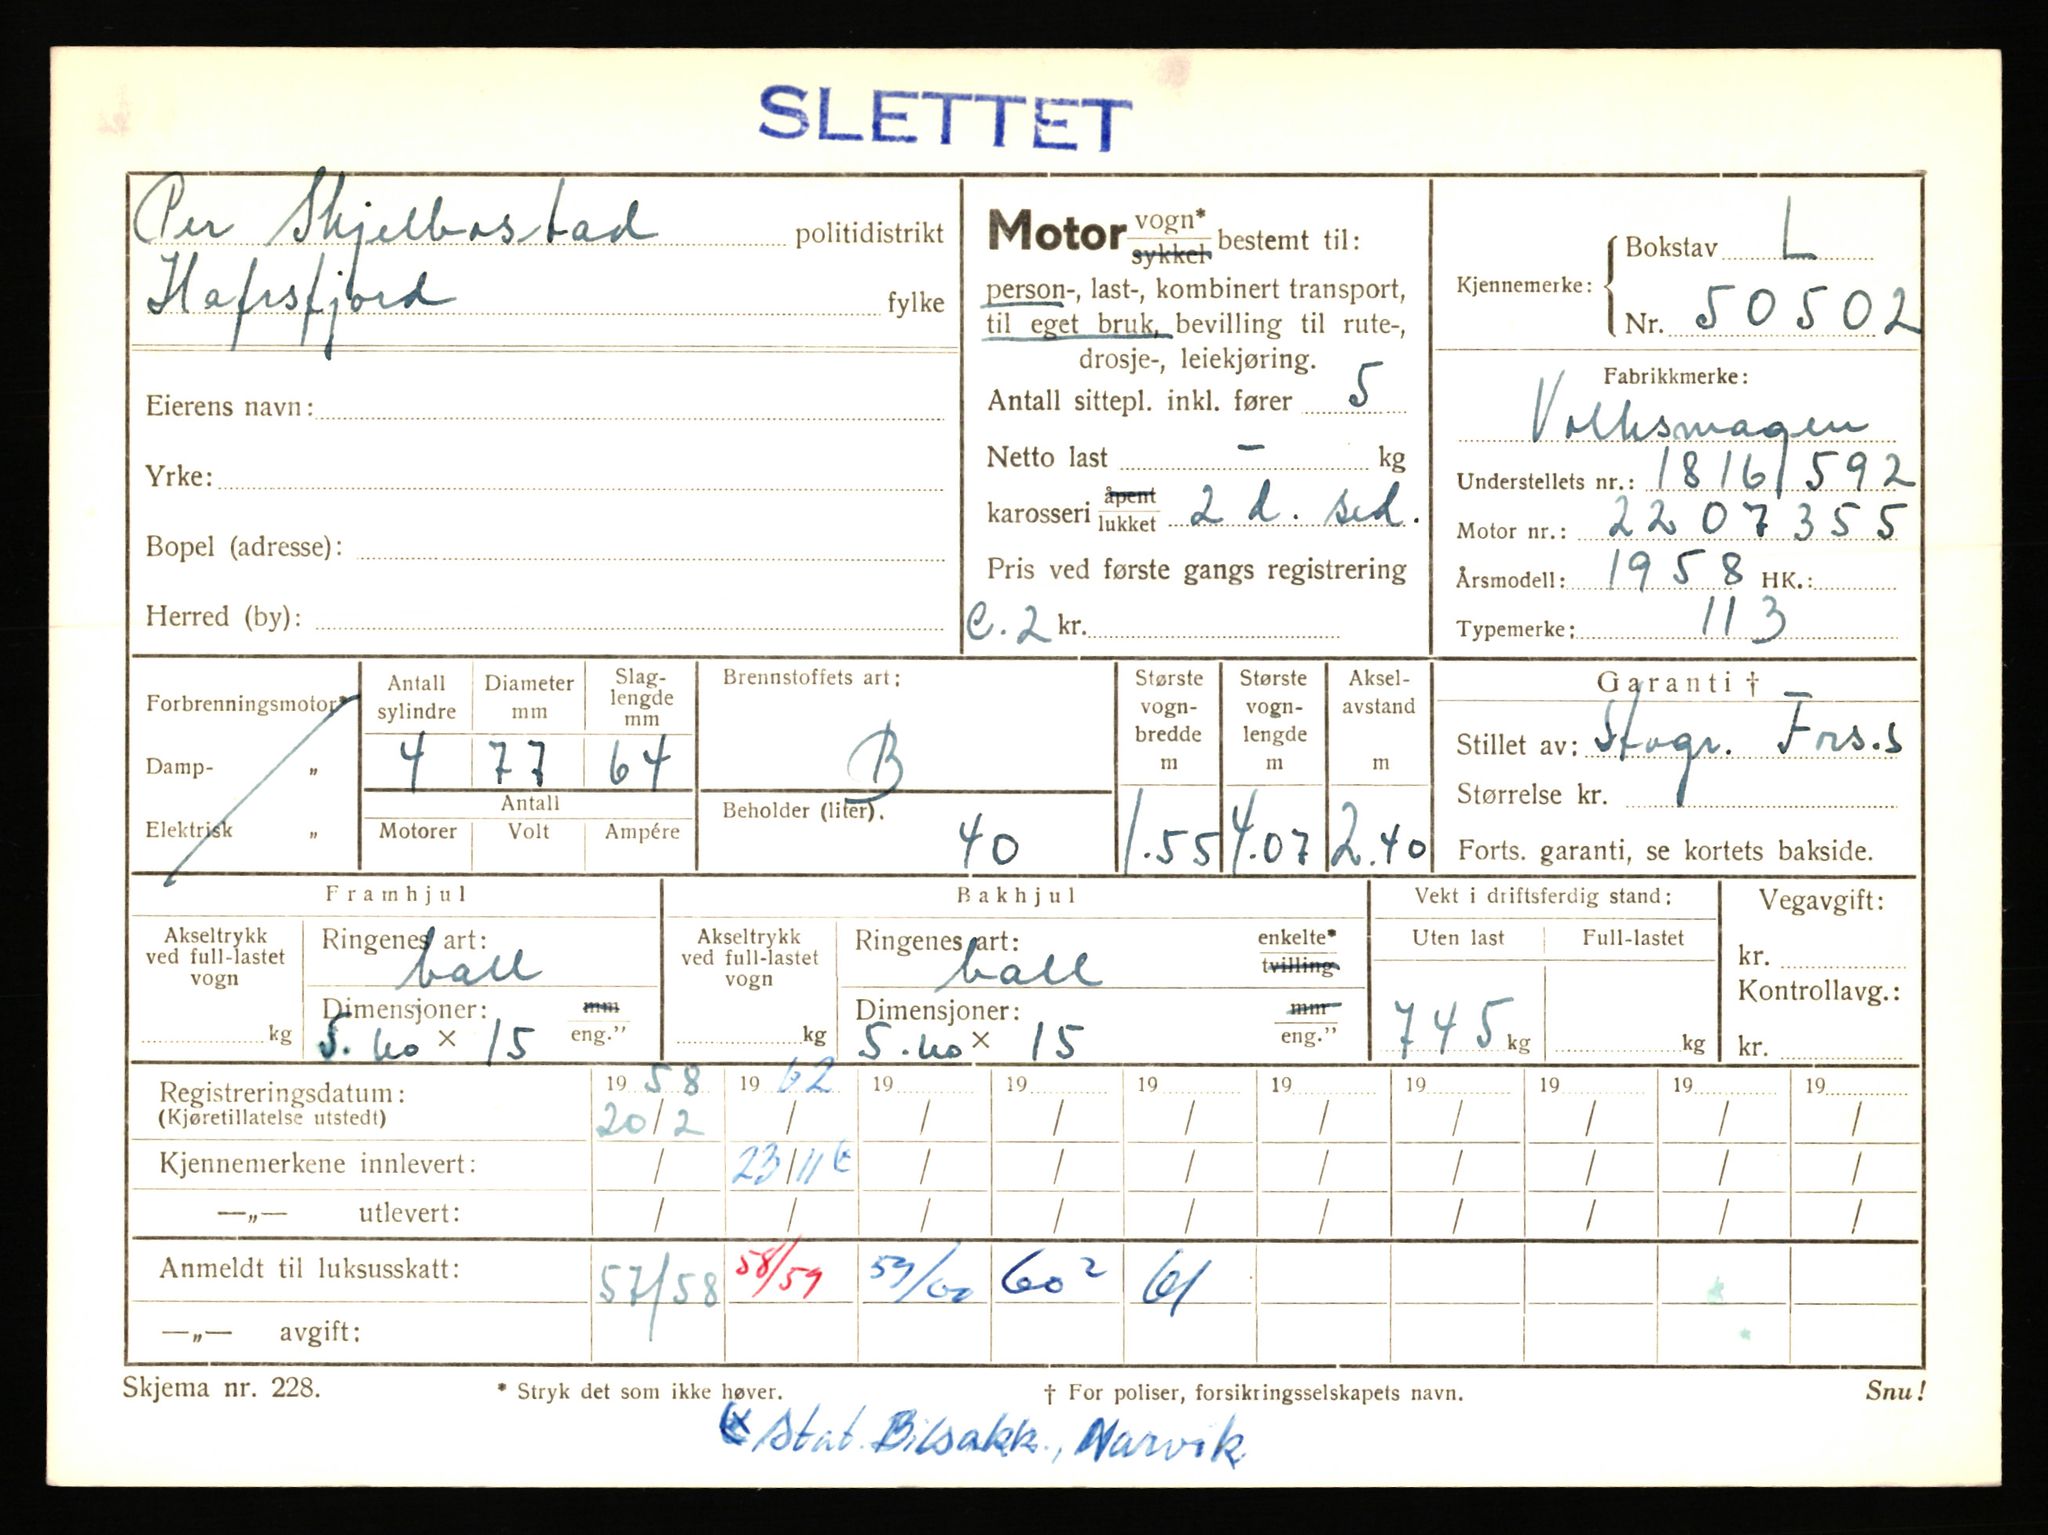 SLETTET
Per Skjelbostad politidistrikt
Hafrsfjord fylke
Eierens navn:
Yrke:
Bopel (adresse):
Herred (by):
Motor vogn* sykkel bestemt til:
person-, last-, kombinert transport,
til eget bruk, bevilling til rute-,
drosje-, leiekjøring.
Antall sittepl. inkl. fører 5
Netto last – kg
karosseri åpent lukket 2 d. sed.
Pris ved første gangs registrering
C.2 kr.
Kjennemerke: Bokstav L
Nr. 50502
Fabrikkmerke:
Volkswagen
Understellets nr.: 1816/592
Motor nr.: 2207355
Årsmodell: 1958 HK.:
Typemerke: 113
Forbrenningsmotor*
Damp- „
Elektrisk „
Antall sylindre
4
Diameter mm
77
Slaglengde mm
64
Antall
Motorer Volt Ampére
Brennstoffets art:
B
Beholder (liter).
40
Største vognbredde m
1.55
Største vognlengde m
4.07
Akselavstand m
2.40
Garanti †
Stillet av: Fors.s
Størrelse kr.
Forts. garanti, se kortets bakside.
Framhjul
Akseltrykk ved full-lastet vogn
kg
Ringenes art:
ball
Dimensjoner: mm
5.60 × 15 eng.”
Bakhjul
Akseltrykk ved full-lastet vogn
kg
Ringenes art: enkelte*
ball tvilling
Dimensjoner: mm
5.60 × 15 eng.”
Vekt i driftsferdig stand:
Uten last Full-lastet
745 kg kg
Vegavgift:
kr.
Kontrollavg.:
kr.
Registreringsdatum: 1958 1962 19 19 19 19 19 19 19 19
(Kjøretillatelse utstedt) 20/2 / / / / / / / / /
Kjennemerkene innlevert: / 23/11 / / / / / / / /
—„— utlevert: / / / / / / / / / /
Anmeldt til luksusskatt: 57/58 58/59 59/60 60² 61
—„— avgift:
Skjema nr. 228. * Stryk det som ikke høver. † For poliser, forsikringsselskapets navn. Snu!
Stat. Bilsakk., Narvik